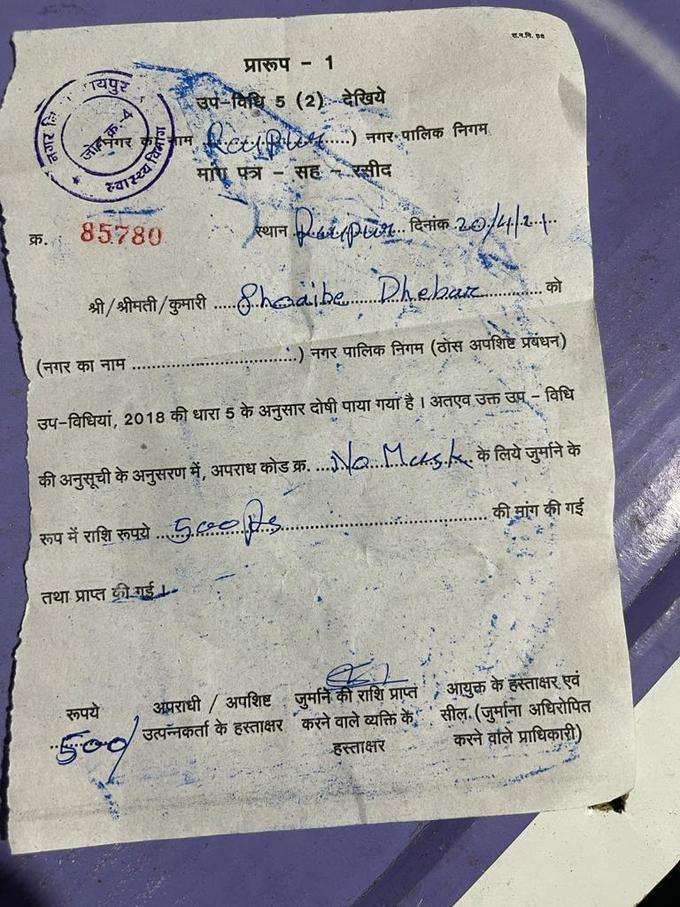 रा.न.नि. प्रेस
प्रारूप - 1
उप-विधि 5 (2) देखिये
नगर नि रायपुर
जोन क्र. 4
स्वास्थ्य विभाग
नगर का नाम Raipur.....) नगर पालिक निगम
मांग पत्र - सह - रसीद
क्र. 85780 स्थान Raipur दिनांक 20/4/21
श्री/श्रीमती/कुमारी ..... Shoaibe Dhebar ..... को
(नगर का नाम ..............................) नगर पालिक निगम (ठोस अपशिष्ट प्रबंधन)
उप-विधियां, 2018 की धारा 5 के अनुसार दोषी पाया गया है । अतएव उक्त उप - विधि
की अनुसूची के अनुसरण में, अपराध कोड क्र. ...No Mask... के लिये जुर्माने के
रूप में राशि रूपये ...500 Rs.............................. की मांग की गई
तथा प्राप्त की गई ।
रूपये अपराधी / अपशिष्ट जुर्माने की राशि प्राप्त आयुक्त के हस्ताक्षर एवं
500/ उत्पन्नकर्ता के हस्ताक्षर करने वाले व्यक्ति के सील (जुर्माना अधिरोपित
हस्ताक्षर करने वाले प्राधिकारी)